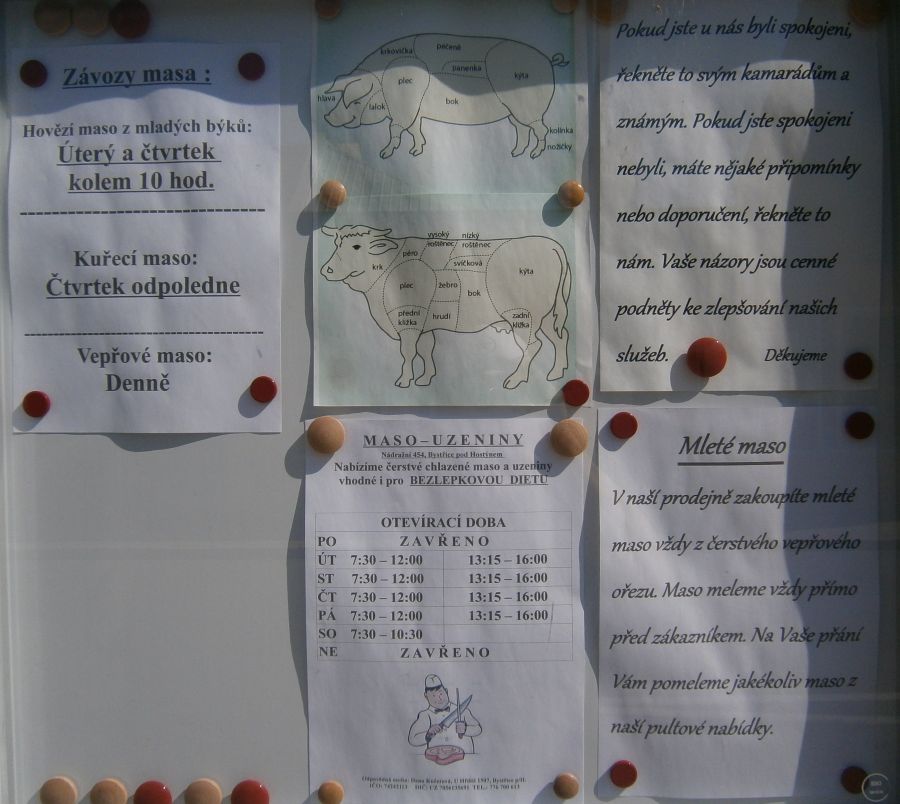 Závozy masa :
Hovězí maso z mladých býků:
Úterý a čtvrtek
kolem 10 hod.
Kuřecí maso:
Čtvrtek odpoledne
Vepřové maso:
Denně
krkovička
pečeně
panenka
plec
kýta
hlava
lalok
bok
kolínka
nožičky
vysoký nízký
roštěnec roštěnec
péro
svíčková
krk
kýta
plec
žebro
bok
přední
kližka
hrudí
zadní
kližka
MASO – UZENINY
Nádražní 454, Bystřice pod Hostýnem
Nabízíme čerstvé chlazené maso a uzeniny
vhodné i pro BEZLEPKOVOU DIETU
OTEVÍRACÍ DOBA
PO ZAVŘENO
ÚT 7:30 – 12:00 13:15 – 16:00
ST 7:30 – 12:00 13:15 – 16:00
ČT 7:30 – 12:00 13:15 – 16:00
PÁ 7:30 – 12:00 13:15 – 16:00
SO 7:30 – 10:30
NE ZAVŘENO
Odpovědná osoba:
Pokud jste u nás byli spokojeni,
řekněte to svým kamarádům a
známým. Pokud jste spokojeni
nebyli, máte nějaké připomínky
nebo doporučení, řekněte to
nám. Vaše názory jsou cenné
podněty ke zlepšování našich
služeb. Děkujeme
Mleté maso
V naší prodejně zakoupíte mleté
maso vždy z čerstvého vepřového
ořezu. Maso meleme vždy přímo
před zákazníkem. Na Vaše přání
Vám pomeleme jakékoliv maso z
naší pultové nabídky.